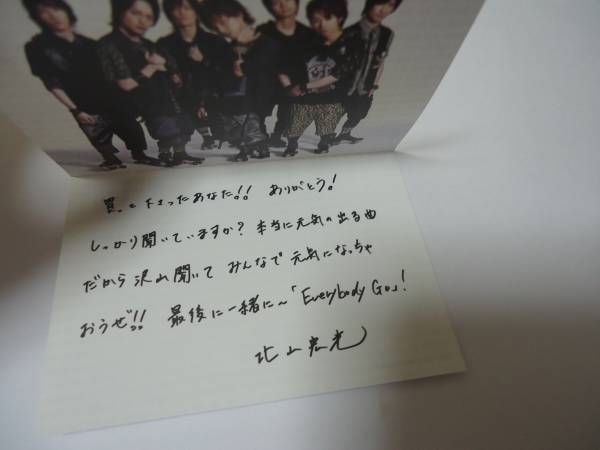 買って下さったあなた!! ありがとう!
しっかり聞いていますか? 本当に元気の出る曲
だから沢山聞いて みんなで 元気になっちゃ
おうぜ!! 最後に一緒に〜「Everybody Go」!
北山宏光